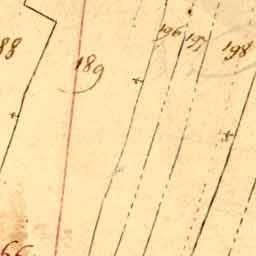 196
197
198
88
189
66